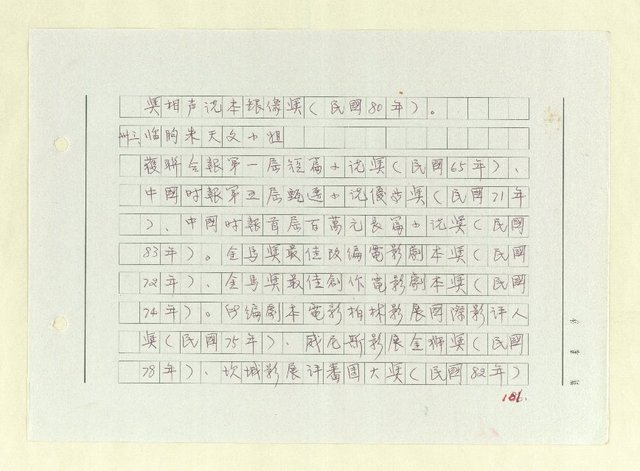 獎相声说本銀像獎(民國80年)。
卅三、临朐朱天文小姐
獲聯合報第一届短篇小说獎(民國65年)、
中國时報第五届甄选小说優勝獎(民國71年
)、中國时報首届百萬元長篇小说獎(民國
83年)。金馬獎最佳改編電影劇本獎(民國
72年)、金馬獎最佳創作電影劇本獎(民國
74年)。所編劇本電影柏林影展國際影评人
獎(民國75年)、威尼斯影展金獅獎(民國
78年)、坎城影展评審團大獎(民國82年)
186.